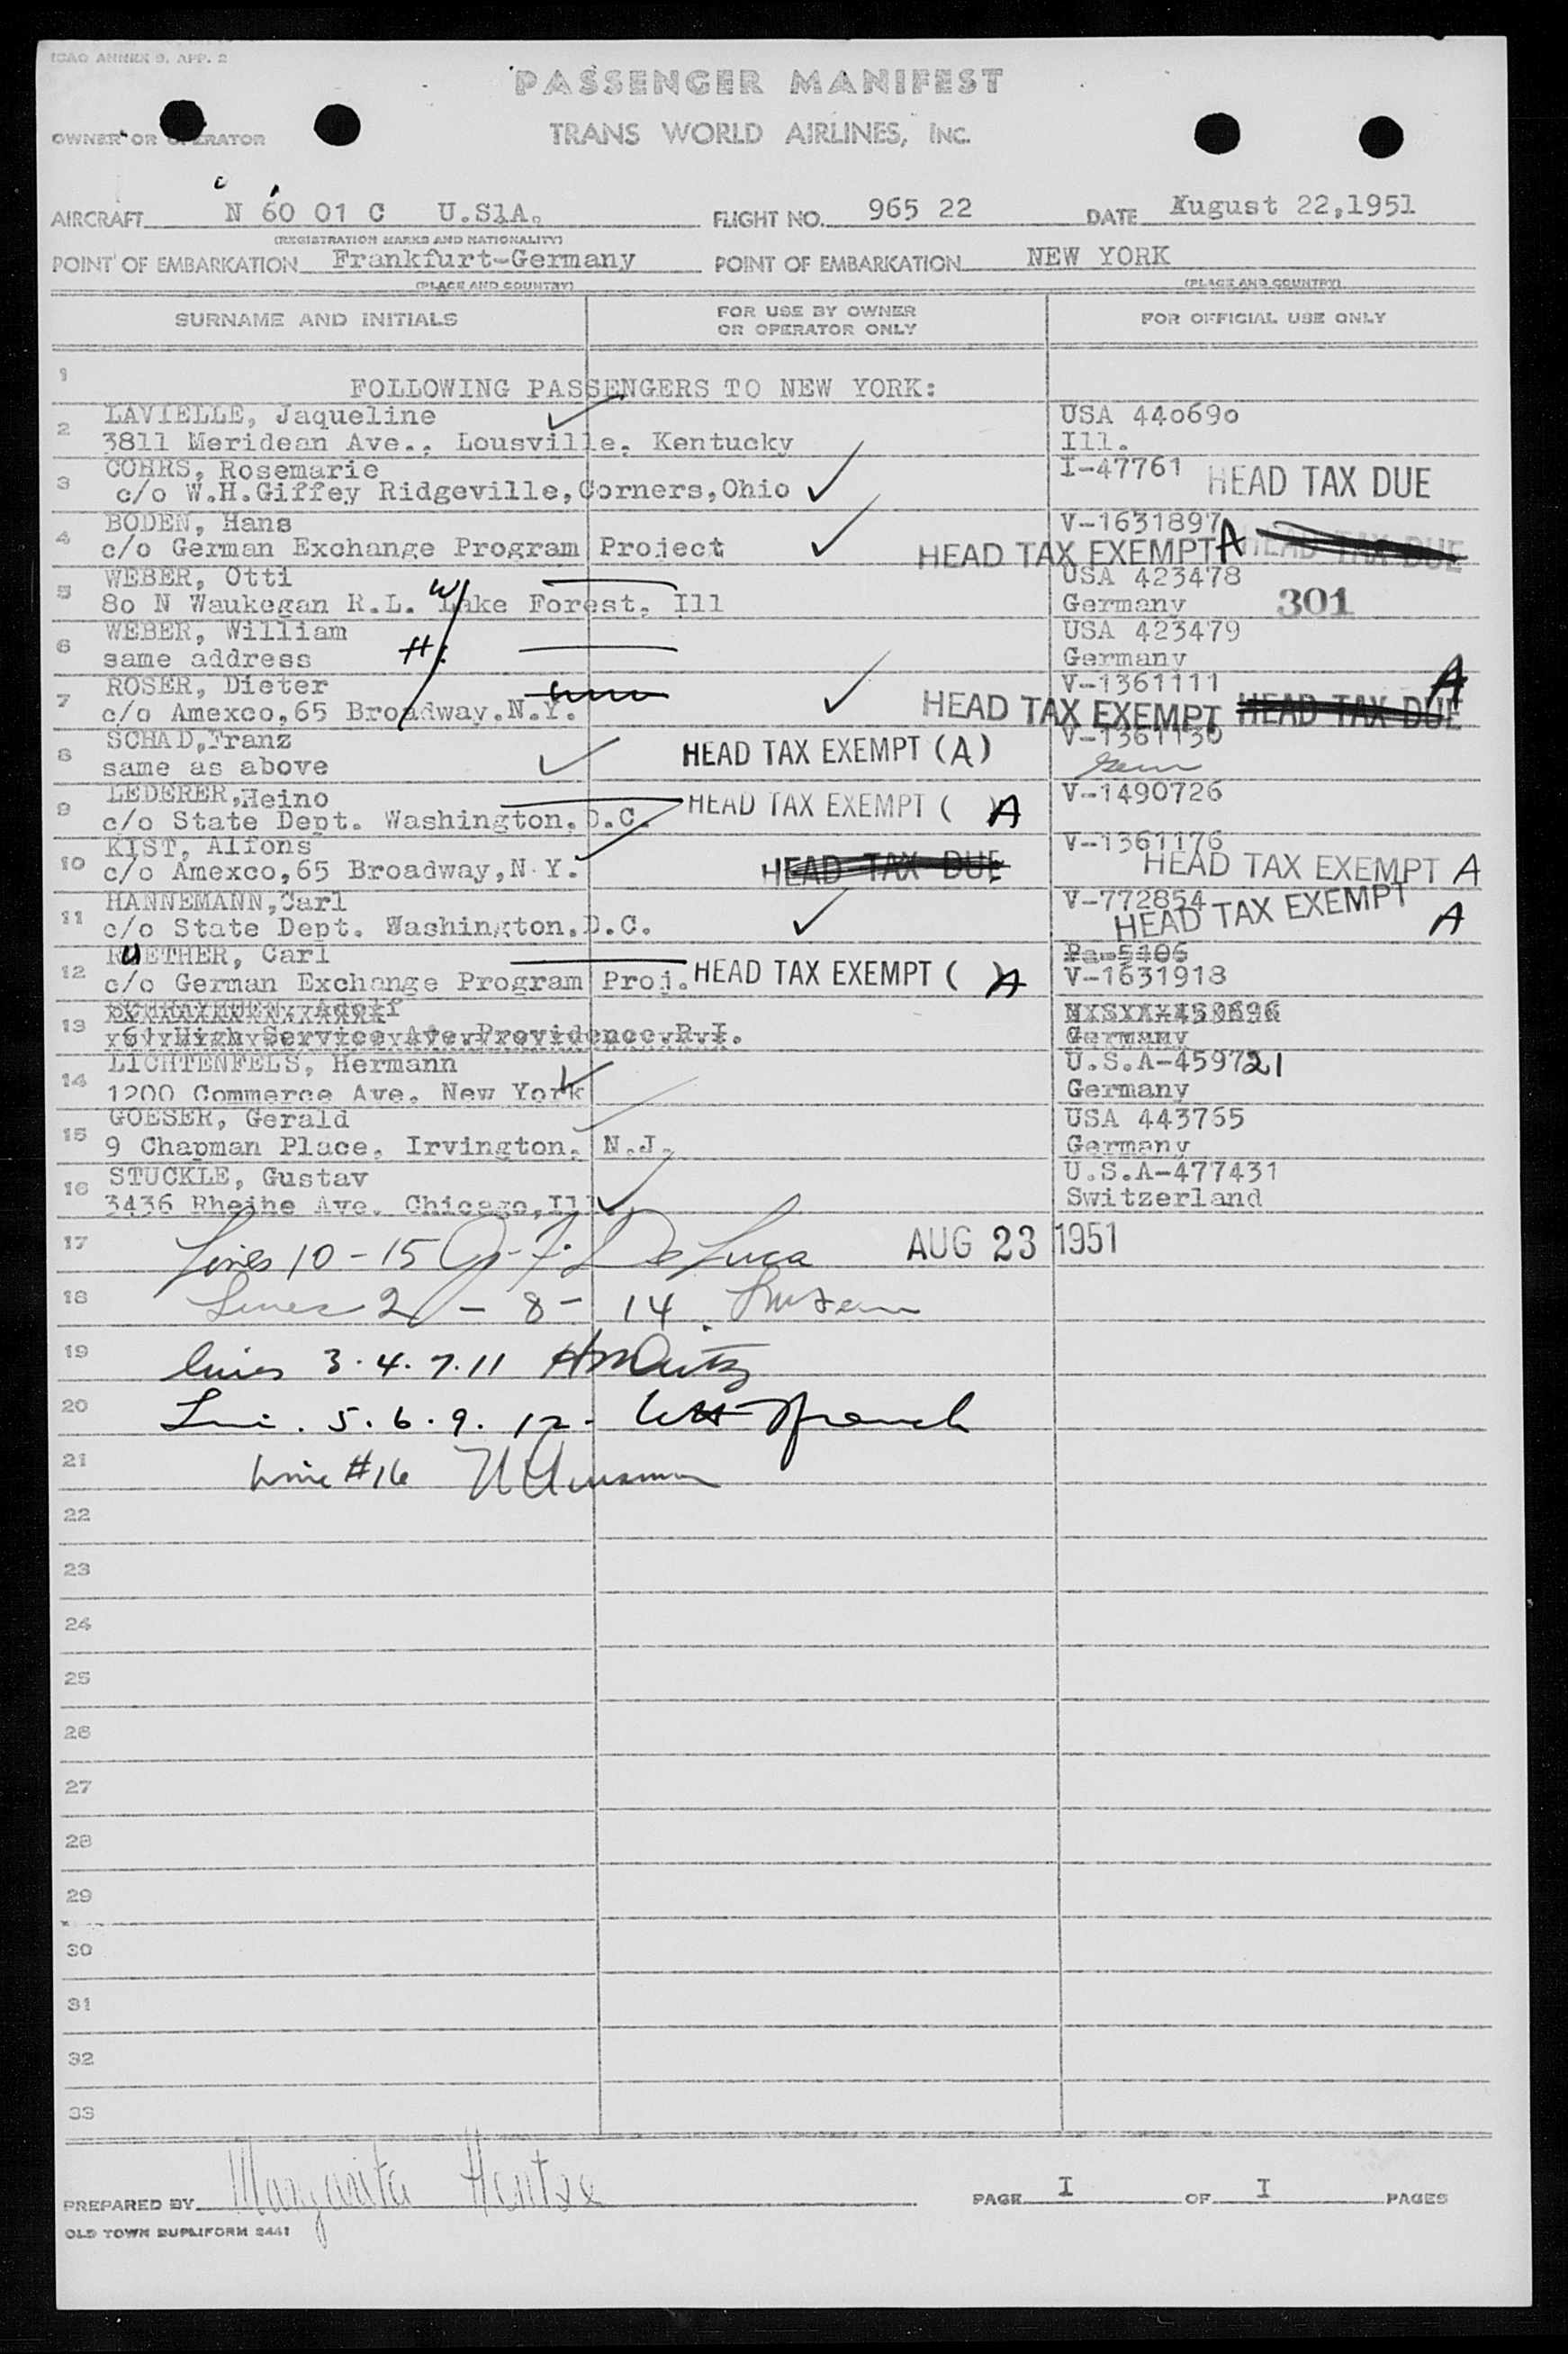 ICAO ANNEX 9, APP. 2
PASSENGER MANIFEST
OWNER OR OPERATOR TRANS WORLD AIRLINES, INC.
AIRCRAFT N 60 01 C U.S1A. FLIGHT NO. 965 22 DATE August 22,1951
(REGISTRATION MARKS AND NATIONALITY)
POINT OF EMBARKATION Frankfurt-Germany POINT OF EMBARKATION NEW YORK
(PLACE AND COUNTRY) (PLACE AND COUNTRY)
SURNAME AND INITIALS FOR USE BY OWNER OR OPERATOR ONLY FOR OFFICIAL USE ONLY
1 FOLLOWING PASSENGERS TO NEW YORK:
2 LAVIELLE, Jaqueline USA 440690
3811 Meridean Ave., Lousville, Kentucky Ill.
3 COHRS, Rosemarie I-47761 HEAD TAX DUE
c/o W.H.Giffey Ridgeville,Corners,Ohio
4 BODEN, Hans V-1631897
c/o German Exchange Program Project HEAD TAX EXEMPT A HEAD TAX DUE
5 WEBER, Otti USA 423478
80 N Waukegan R.L. W/ Lake Forest, Ill Germany 301
6 WEBER, William USA 423479
same address H: Germany
7 ROSER, Dieter V-1361111 A
c/o Amexco,65 Broadway.N.Y. HEAD TAX EXEMPT HEAD TAX DUE
8 SCHAD,Franz HEAD TAX EXEMPT (A) V-1361130
same as above Germ
9 LEDERER,Heino HEAD TAX EXEMPT ( )A V-1490726
c/o State Dept. Washington,D.C.
10 KIST, Alfons V-1361176
c/o Amexco,65 Broadway,N.Y. HEAD TAX DUE HEAD TAX EXEMPT A
11 HANNEMANN,Carl V-772854
c/o State Dept. Washington,D.C. HEAD TAX EXEMPT A
12 RUETHER, Carl Pa-5406
c/o German Exchange Program Proj. HEAD TAX EXEMPT ( )A V-1631918
13 Adolf
61 High Service Ave Providence R.I. Germany
14 LICHTENFELS, Hermann U.S.A-459721
1200 Commerce Ave. New York Germany
15 GOESER, Gerald USA 443765
9 Chapman Place, Irvington, N.J. Germany
16 STUCKLE, Gustav U.S.A-477431
3436 Rheihe Ave. Chicago,Ill Switzerland
17 Lines 10-15 J. F. DeLuca AUG 23 1951
18 Lines 2 - 8 - 14
19 lines 3.4.7.11
20 5.6.9.12- French
21 Line #16
22
23
24
25
26
27
28
29
30
31
32
33
PREPARED BY Margarita Hentze PAGE I OF I PAGES
OLD TOWN DUPLIFORM 2441